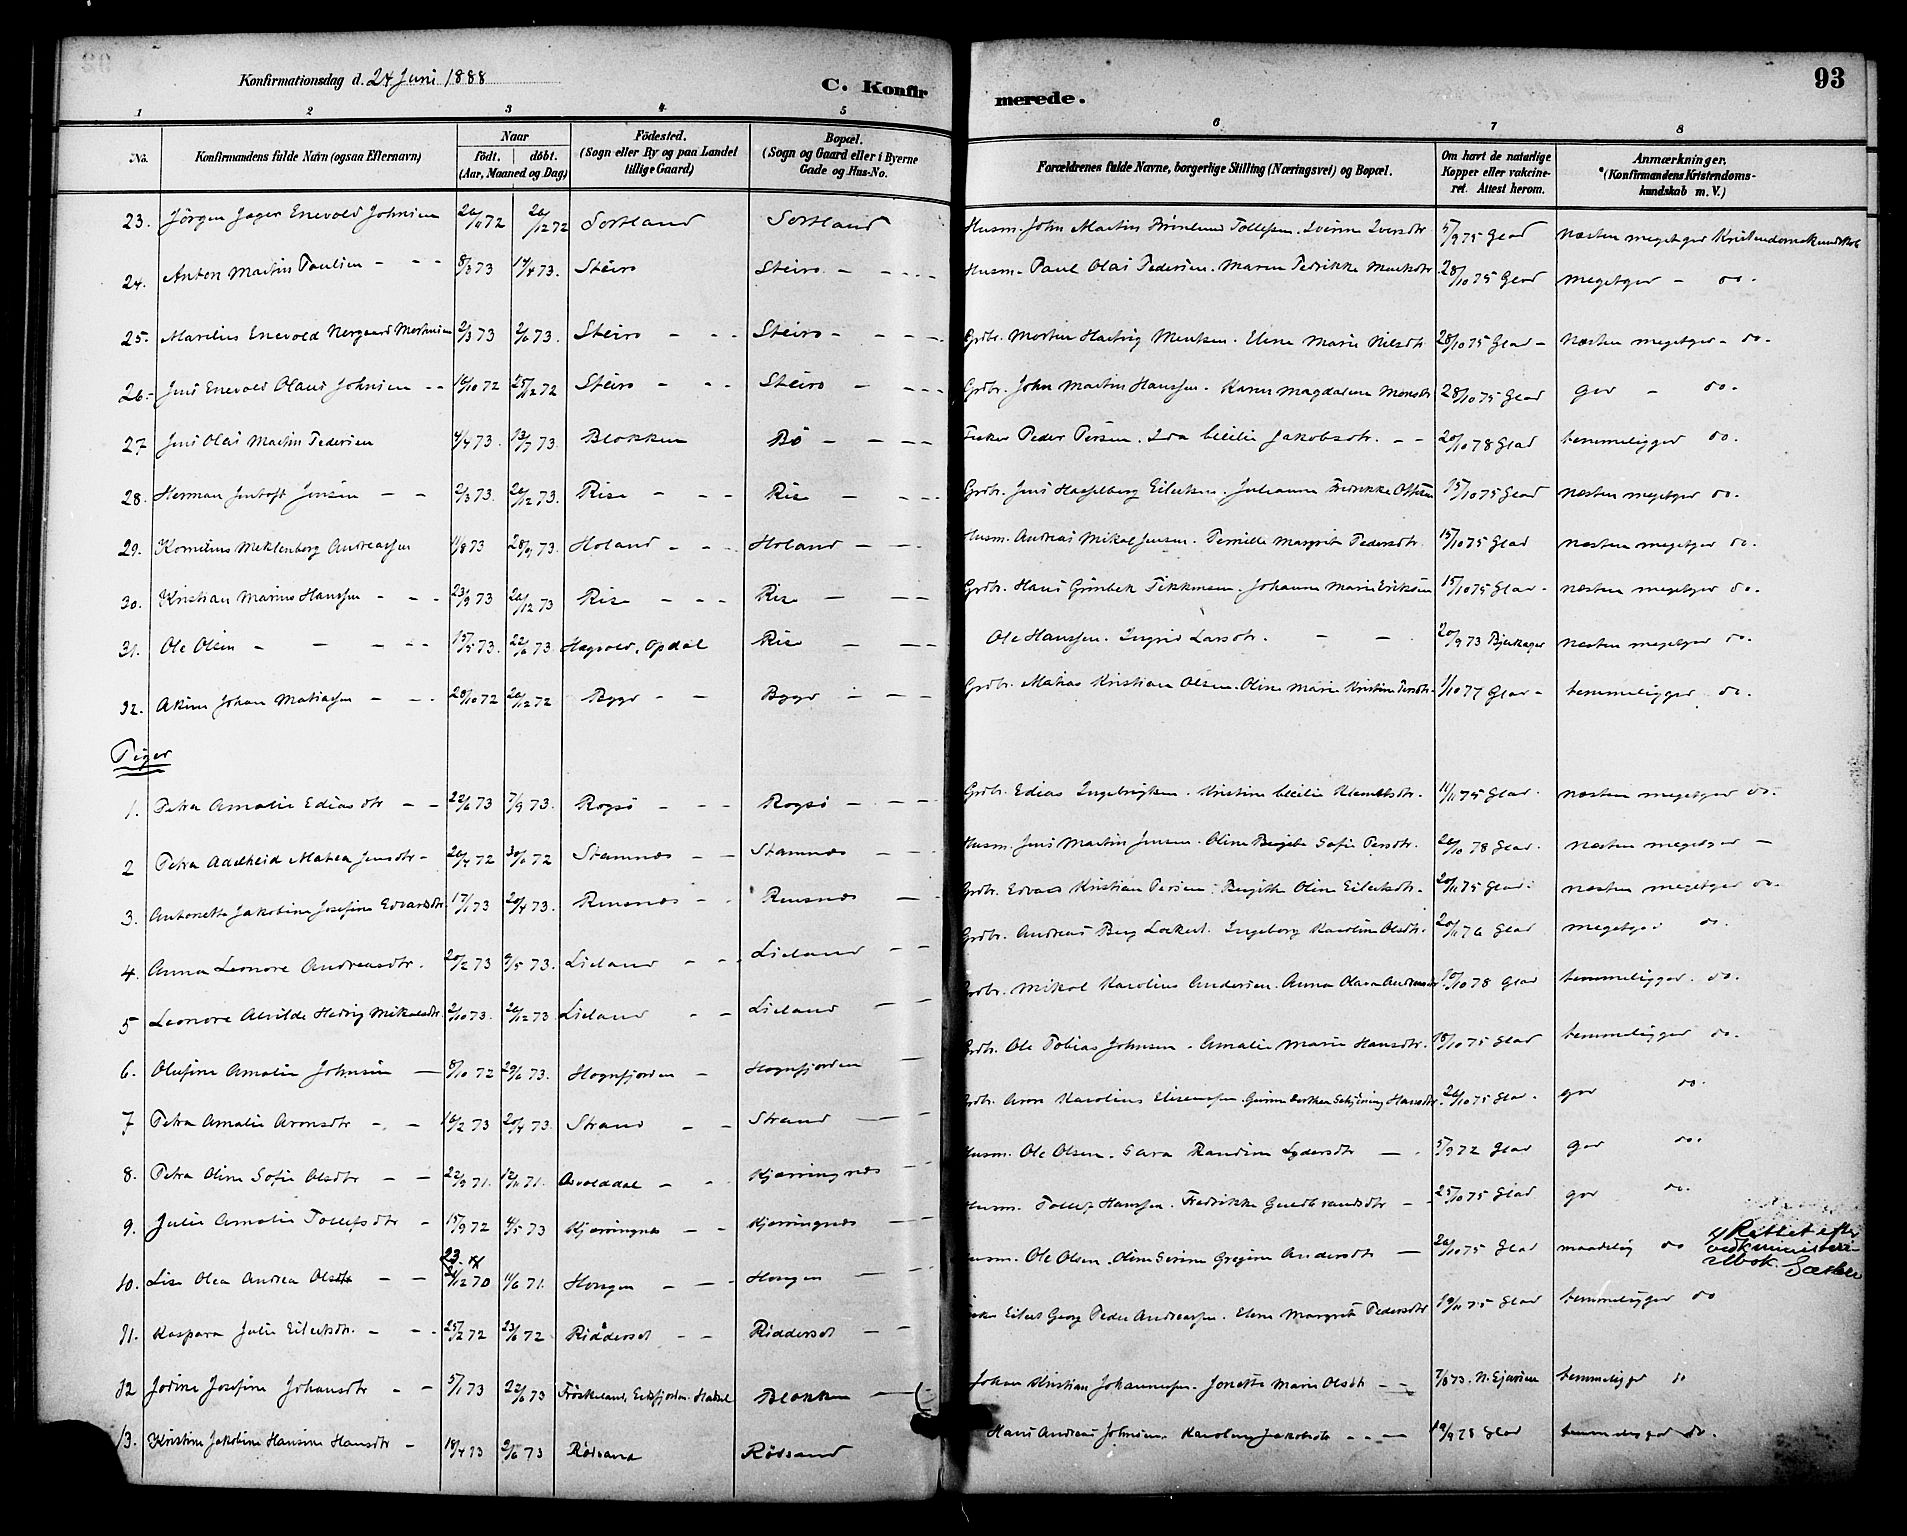 93
Konfirmationsdag d. 24 Juni 1888
C. Konfirmerede.
1 2 3 4 5 6 7 8
No.
Konfirmandens fulde Navn (ogsaa Efternavn)
Naar
födt. döbt.
(Aar, Maaned og Dag)
Födested.
(Sogn eller By og paa Landet tillige Gaard)
Bopæl.
(Sogn og Gaard eller i Byerne Gade og Hus-No.
Forældrenes fulde Navne, borgerlige Stilling (Næringsvei) og Bopæl.
Om havt de naturlige Kopper eller vakcineret. Attest herom.
Anmærkninger.
(Konfirmandens Kristendomskundskab m. V.)
23. Jörgen Jager Enevold Johnsen Sortland Sortland Husm. John Martin 5/9 75 Glad Næsten megetgod Kristendomskundskab
24. Anton Martin Paulsen 8/3 73 14/4 73. Steiro Steiro. Husm. Paul Olai Pedersen. Maren Fedrikke 28/10 75 Glad megetgod do.
25. Marelius Enevold Nergaard 2/3 73 2/6 73. Steiro Steiro Grdbr. Morten Hartvig Elene Marie Nilsdtr 28/10 75 Glad Næsten megetgod do.
26. Jens Enevold Olaus Johnsen 16/10 72 25/12 72 Steiro Steiro Grdbr. John Martin Hanssen. Karen Magdalene Monsdtr 28/10 75 Glad god do.
27 Jens Olai Martin Pedersen 4/4 73. 13/7 73. Blokken Bö Peder Persen. Ida Cecilie Jakobsdtr. 20/10 78 Glad temmeliggod do.
28. Herman Jentoft Jensen 2/3 73. 26/12 73. Rise Rise Grdbr. Jens Hasselberg Eilertsen. Julianna Fredrikke 15/10 75 Glad næsten megetgod do.
29. Kornelius Meklenborg Andreassen 11/8 73 28/9 73. Holand Holand Husm. Andreas Mikal Jensen. Pernille Margrit Pedersdtr. 15/10 75 Glad næsten megetgod do.
30. Kristian Marius Hanssen 23/9 73 26/12 73 Rise Rise Grdbr. Hans Grönbek Johanna Marie 15/10 75 Glad næsten megetgod do.
31. Ole Olsen 15/5 73. 22/6 73 Opdal Rise Ole Hanssen. Ingrid Larsdtr. 20/9 73 næsten megetgod do.
32. Johan Matiassen 28/10 72 26/12 72 Bygd Bygd Grdbr. Matias Kristian Olsen. Oline Marie Kristine Persdtr. 1/10 77 Glad temmeliggod do.
Piger
1. Petra Amalie Ediasdtr 22/6 73 7/9 73. Rogsö Rogsö Grdbr. Edias Ingebrigtsen. Kristine Cecilie Klemetsdtr. 11/11 75 Glad næsten megetgod do.
2 Petra Aadelheid Matea Jensdtr 26/4 72 30/6 72 Stamnæs Stamnæs Husm. Jens Martin Jensen. Oline Sofie Persdtr. 26/10 78 Glad. næsten megetgod
3. Antonette Jakobine Josefine Edvardsdtr. 17/1 73 20/4 73. Reinsnæs Reinsnæs Grdbr. Edvard Kristian Persen. Birgitte Oline Eilertsdtr. 20/11 75 Glad. næsten megetgod do.
4. Anna Leonore Andreasdtr. 20/2 73 4/5 73. Lieland Lieland Grdbr. Andreas Berg Lockert. Ingeborg Karoline Olsdtr. 20/11 76 Glad megetgod do.
5 Leonore Alvilde Hedvig Mikalsdtr. 2/10 73. 26/12 73 Lieland Lieland Grdbr. Mikal Karolius Andersen. Anna Olava Andreasdtr. 10/10 78 Glad temmeliggod. do.
6. Olufine Amalie Johnsen 8/10 72 29/6 73. Hognfjorden Hognfjorden Grdbr. Ole Tobias Johnsen. Amalie Marie Hansdtr. 18/10 75 Glad temmeliggod do.
7 Petra Amalie Aronsdtr 16/2 73 20/4 73. Strand Strand Grdbr. Aron Karolius Schjelning Hansdtr. 26/10 75 Glad. god do.
8. Petra Oline Sofie Olsdtr 22/9 71. 12/11 71. Kjærringnæs Husm. Ole Olsen. Sara Randine Lydersdtr 5/9 72 Glad god do.
9. Julie Amalie Tollefsdtr 15/9 72 4/5 73 Kjærringnæs Kjærringnæs Husm. Tollef Hanssen. Fredrikke Guldbrandsdtr 25/10 75 Glad god do.
10. Lise Olea Andrea Olsdtr 23. 21/12 70 11/6 71. Hongen Hongen Husm. Ole Olsen. Oline Gregine Andersdtr 26/10 75 Glad maadelig do
Rettet efter
11. Kaspara Julie Eilertsdtr. 25/2 72 23/6 72 Ridderset Ridderset Eilert Georg Peder Andreassen. Elene Margrit Pedersdtr 19/11 75 Glad temmeliggod do
12 Jodine Josefine Johansdtr 5/1 73 22/6 73 Fröskeland, Eidsfjorden. Hadsel Blokken Johan Kristian Johannessen. Jonette Marie Olsdtr temmeliggod do
13. Kristine Jakobine Hansine Hansdtr 18/4 73 2/6 73 Rödsand Rödsand Hans Andreas Johnsen. Jakobsdtr 19/9 78 Glad temmeliggod do.